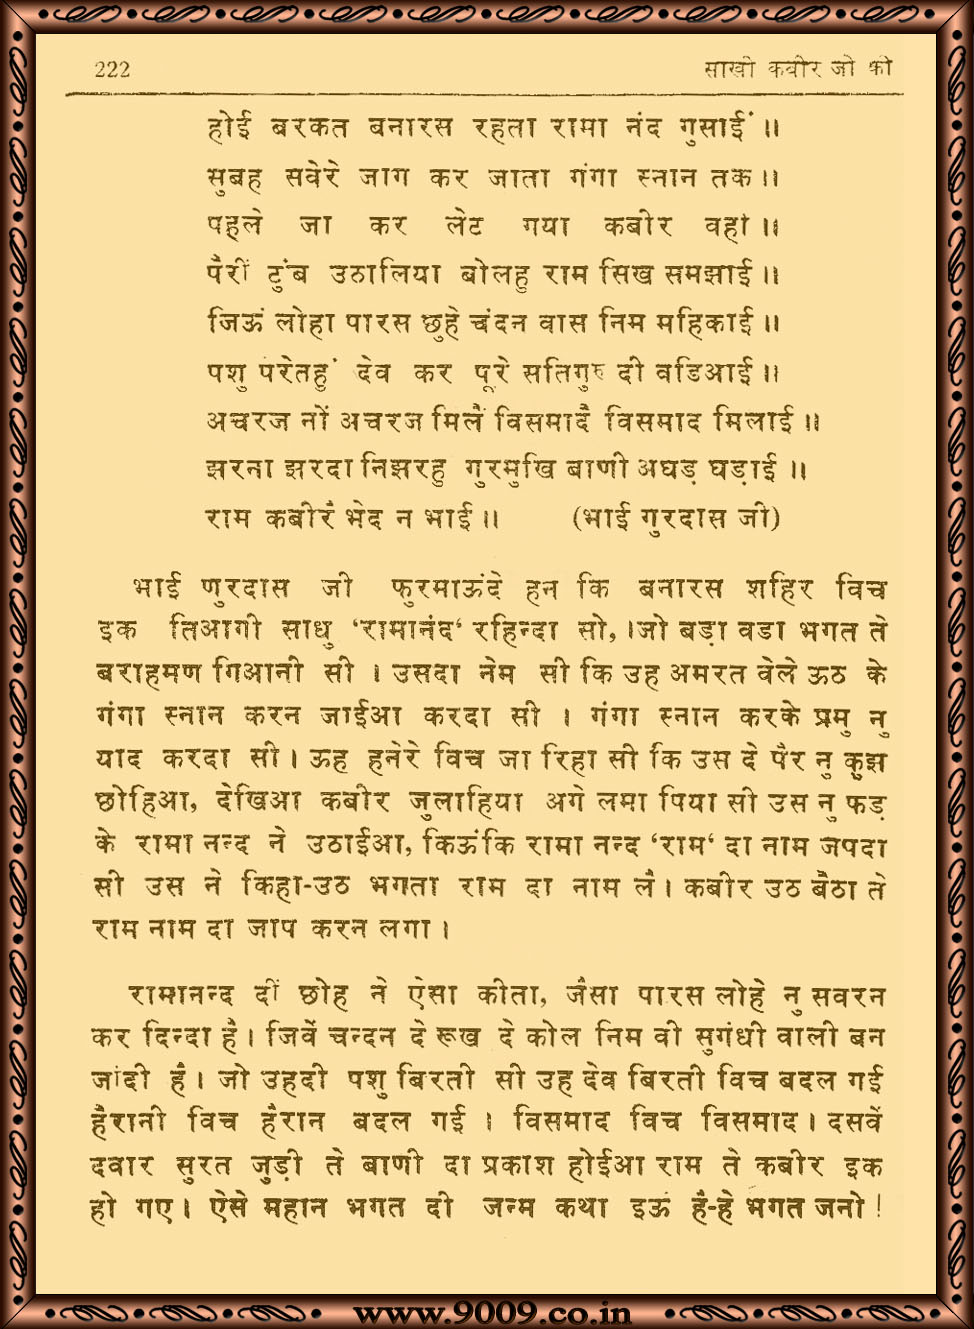 222 साखी कबीर जी की
होई बरकत बनारस रहता रामा नंद गुसाईं ॥
सुबह सवेरे जाग कर जाता गंगा स्नान तक ॥
पहले जा कर लेट गया कबीर वहां ॥
पैरीं टुंब उठालिया बोलहु राम सिख समझाई ॥
जिऊं लोहा पारस छुहे चंदन वास निम महिकाई ॥
पशु परेतहुं देव कर पूरे सतिगुरु दी वडिआई ॥
अचरज नों अचरज मिलैं विसमादैं विसमाद मिलाई ॥
झरना झरदा निझरहु गुरमुखि बाणी अघड़ घड़ाई ॥
राम कबीरैं भेद न भाई ॥ (भाई गुरदास जी)
भाई णुरदास जी फुरमाऊंदे हन कि बनारस शहिर विच
इक तिआगी साधु ‘रामानंद‘ रहिन्दा सो, ।जो बड़ा वडा भगत ते
बराहमण गिआनी सी । उसदा नेम सी कि उह अमरत वेले ऊठ के
गंगा स्नान करन जाईआ करदा सी । गंगा स्नान करके प्रमु नु
याद करदा सी । ऊह हनेरे विच जा रिहा सी कि उस दे पैर नु कुझ
छोहिआ, देखिआ कबीर जुलाहिया अगे लमा पिया सी उस नु फड़
के रामा नन्द ने उठाईआ, किऊंकि रामा नन्द ‘राम‘ दा नाम जपदा
सी उस ने किहा-उठ भगता राम दा नाम लैं । कबीर उठ बैठा ते
राम नाम दा जाप करन लगा ।
रामानन्द दीं छोह ने ऐसा कीता, जैसा पारस लोहे नु सवरन
कर दिन्दा है । जिवें चन्दन दे रूख दे कोल निम वी सुगंधी वाली बन
जांदी है । जो उहदी पशु बिरती सी उह देव बिरती विच बदल गई
हैरानी विच हैरान बदल गई । विसमाद विच विसमाद । दसवें
दवार सुरत जुड़ी ते बाणी दा प्रकाश होईआ राम ते कबीर इक
हो गए । ऐसे महान भगत दी जन्म कथा इऊं है-हे भगत जनो !
www.9009.co.in